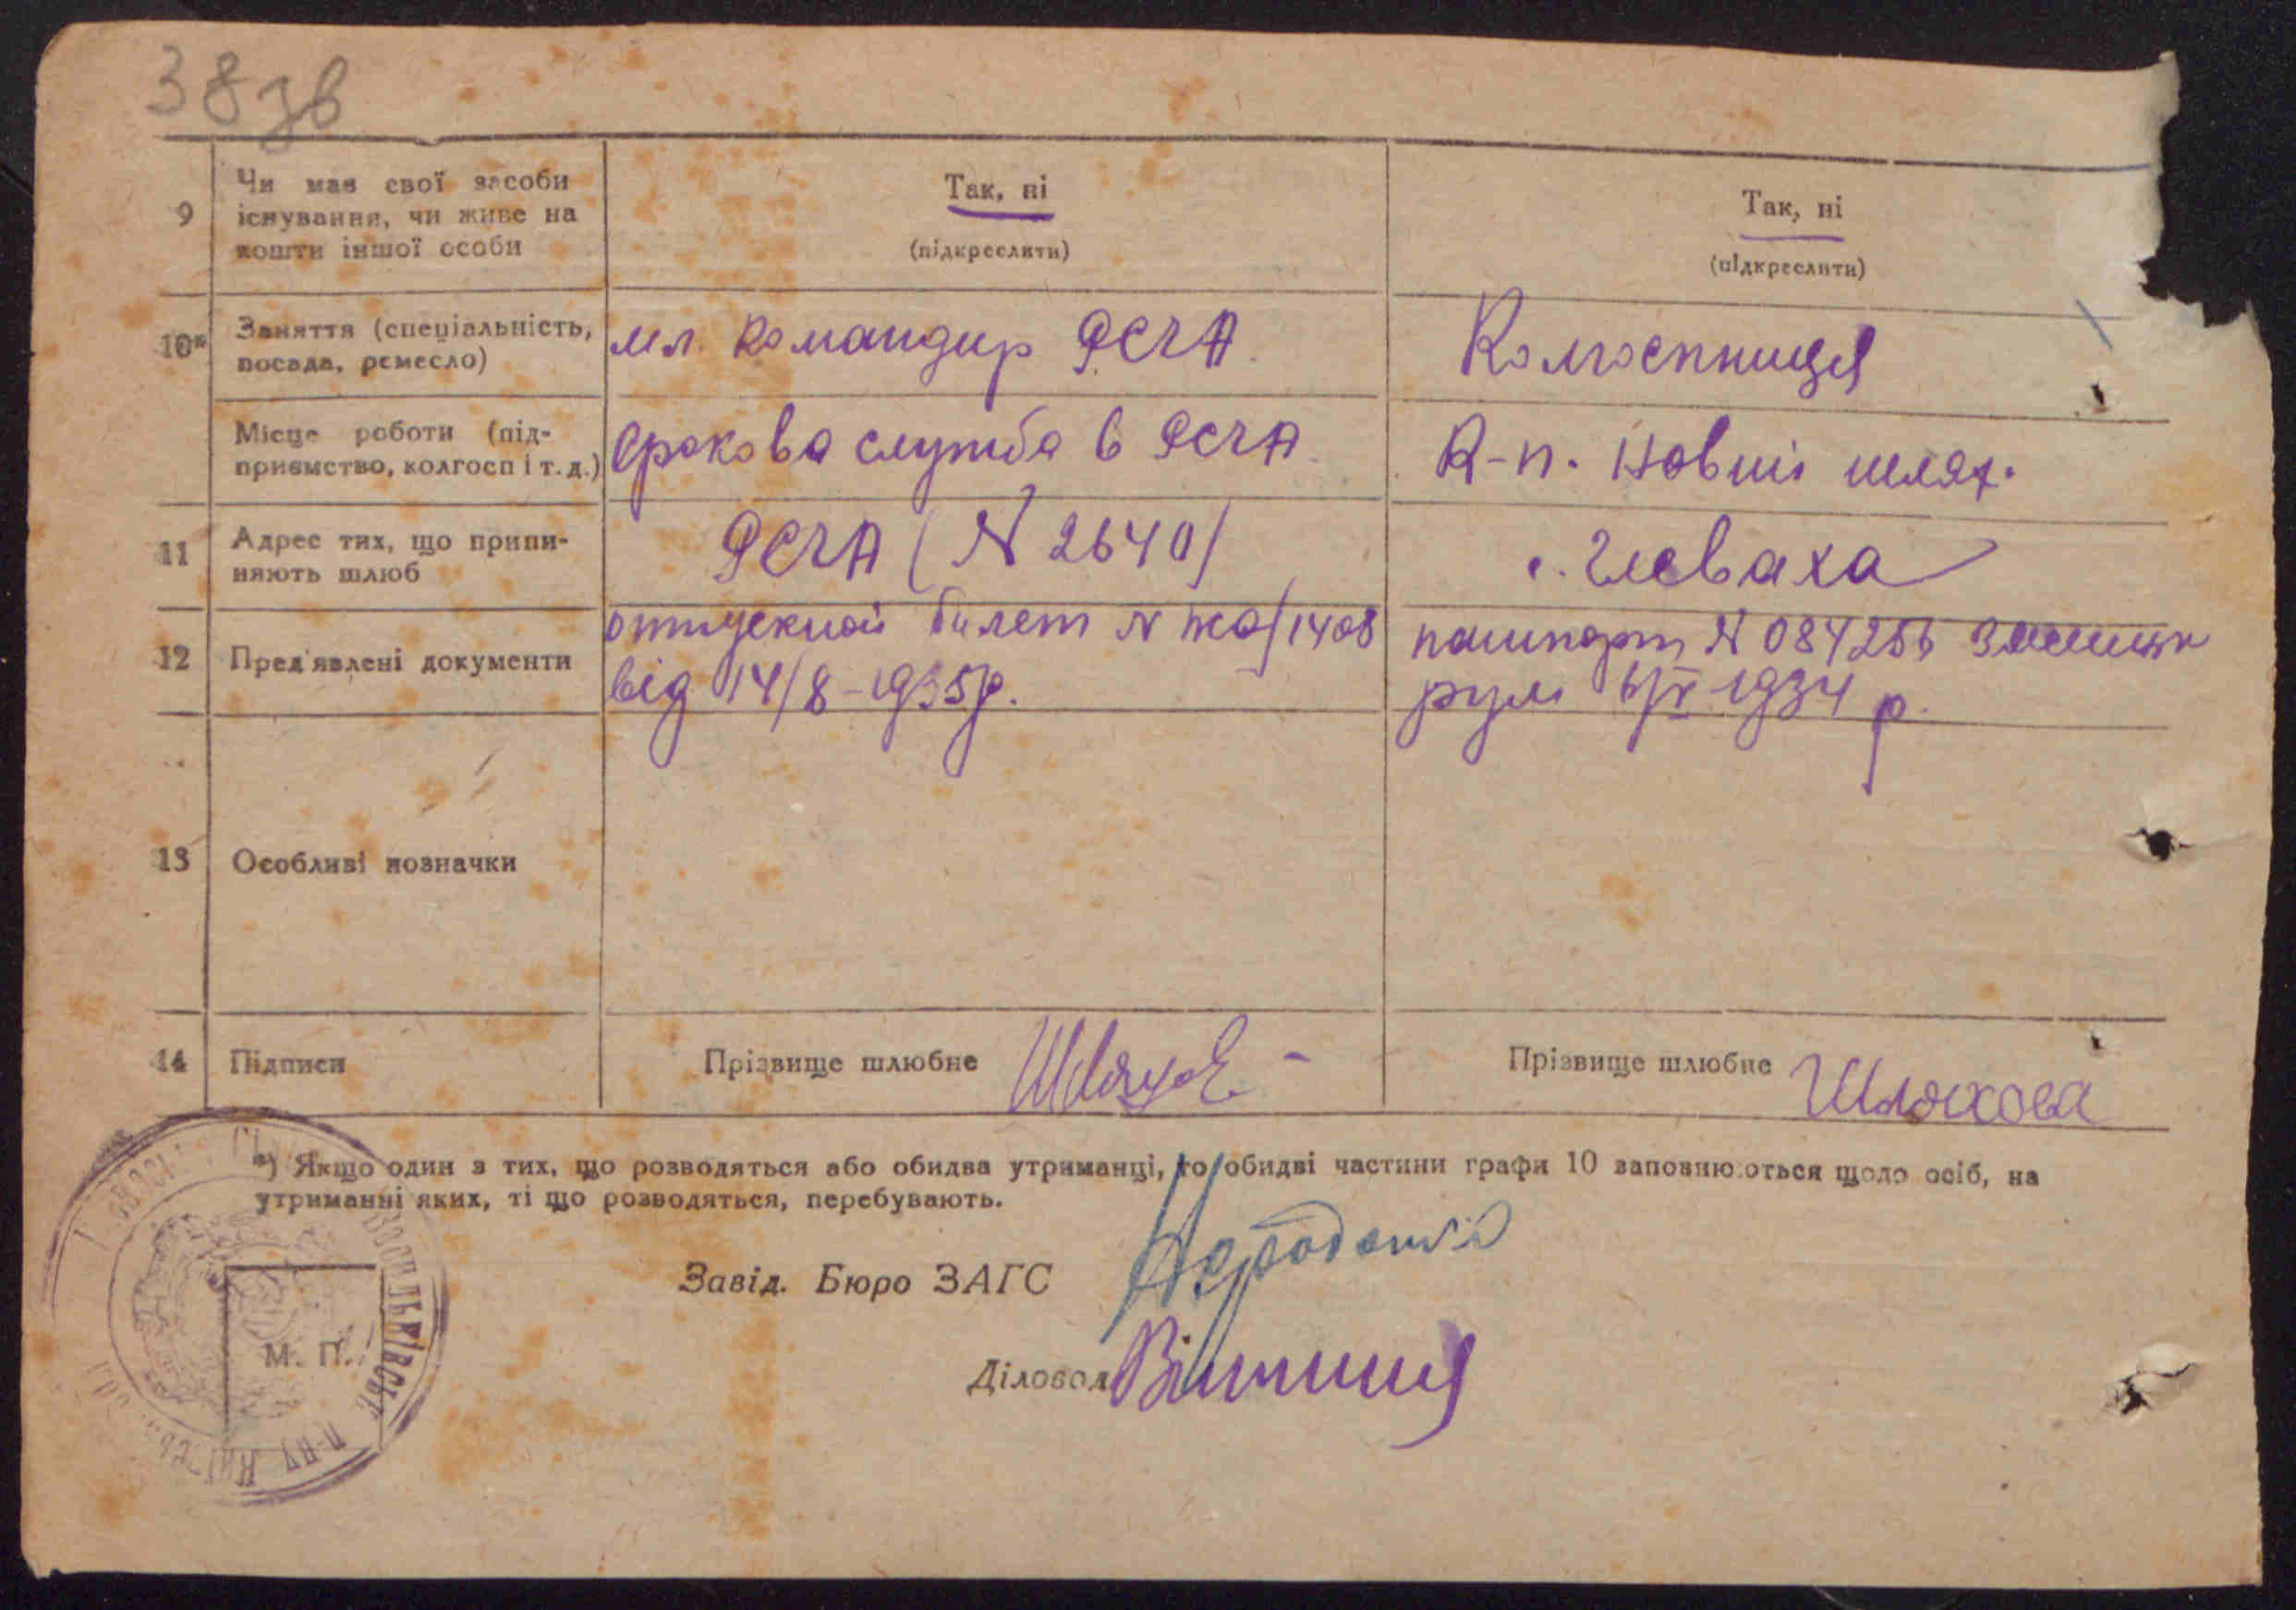 38 зв
9
Чи має свої засоби
існування, чи живе на
кошти іншої особи
Так, ні
(підкреслити)
Так, ні
(підкреслити)
10*
Заняття (спеціальність,
посада, ремесло)
мл. командир РСЧА.
Колгоспниця
Місце роботи (під-
приємство, колгосп і т. д.)
срокова служба в РСЧА
К-п. Новий шлях.
11
Адрес тих, що припи-
няють шлюб
РСЧА (N 2640)
с. Глеваха
12
Пред'явлені документи
отпускной билет N 1408
від 14/8-1935р.
пашпорт N
1934 р.
13
Особливі позначки
14
Підписи
Прізвище шлюбне Шляхов
Прізвище шлюбне Шляхова
*) Якщо один з тих, що розводяться або обидва утриманці, то обидві частини графи 10 заповнюються щодо осіб, на
утриманні яких, ті що розводяться, перебувають.
Завід. Бюро ЗАГС
Діловод
М. П.